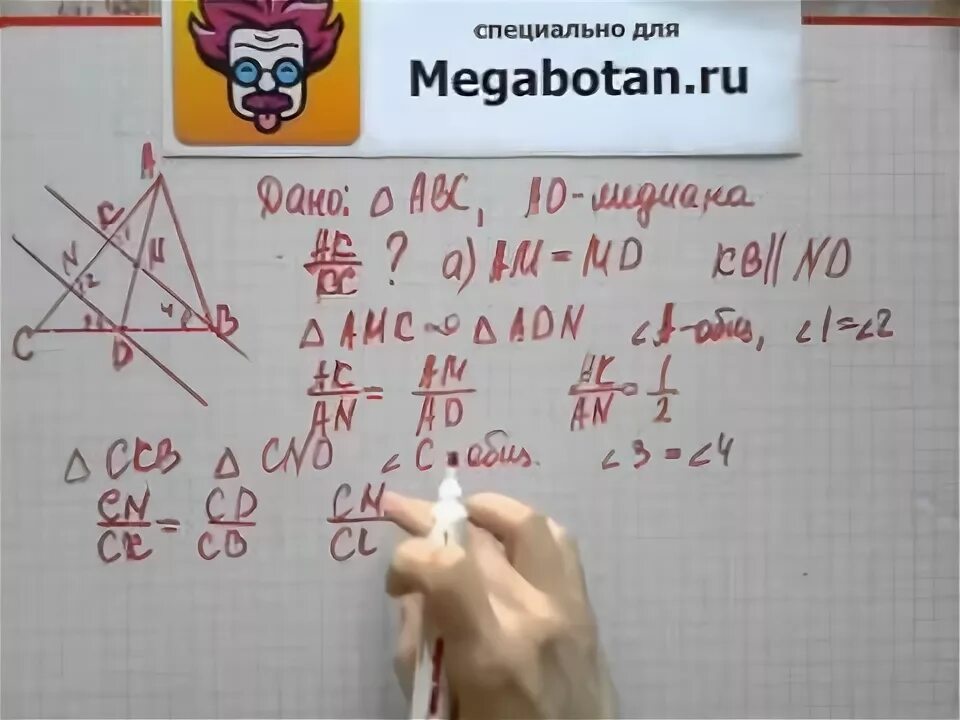 специально для
Megabotan.ru
A
Дано: △ ABC, AD-медиана
K 1 M
AK/KC ? а) AM = MD KB || ND
N 2
4 B
C 3 D
△ AMK ∾ △ ADN ∠A-общ, ∠1=∠2
AK/AN = AM/AD AK/AN = 1/2
△ CKB △ CND ∠C-общ. ∠3=∠4
CN/CK = CD/CB CN/C